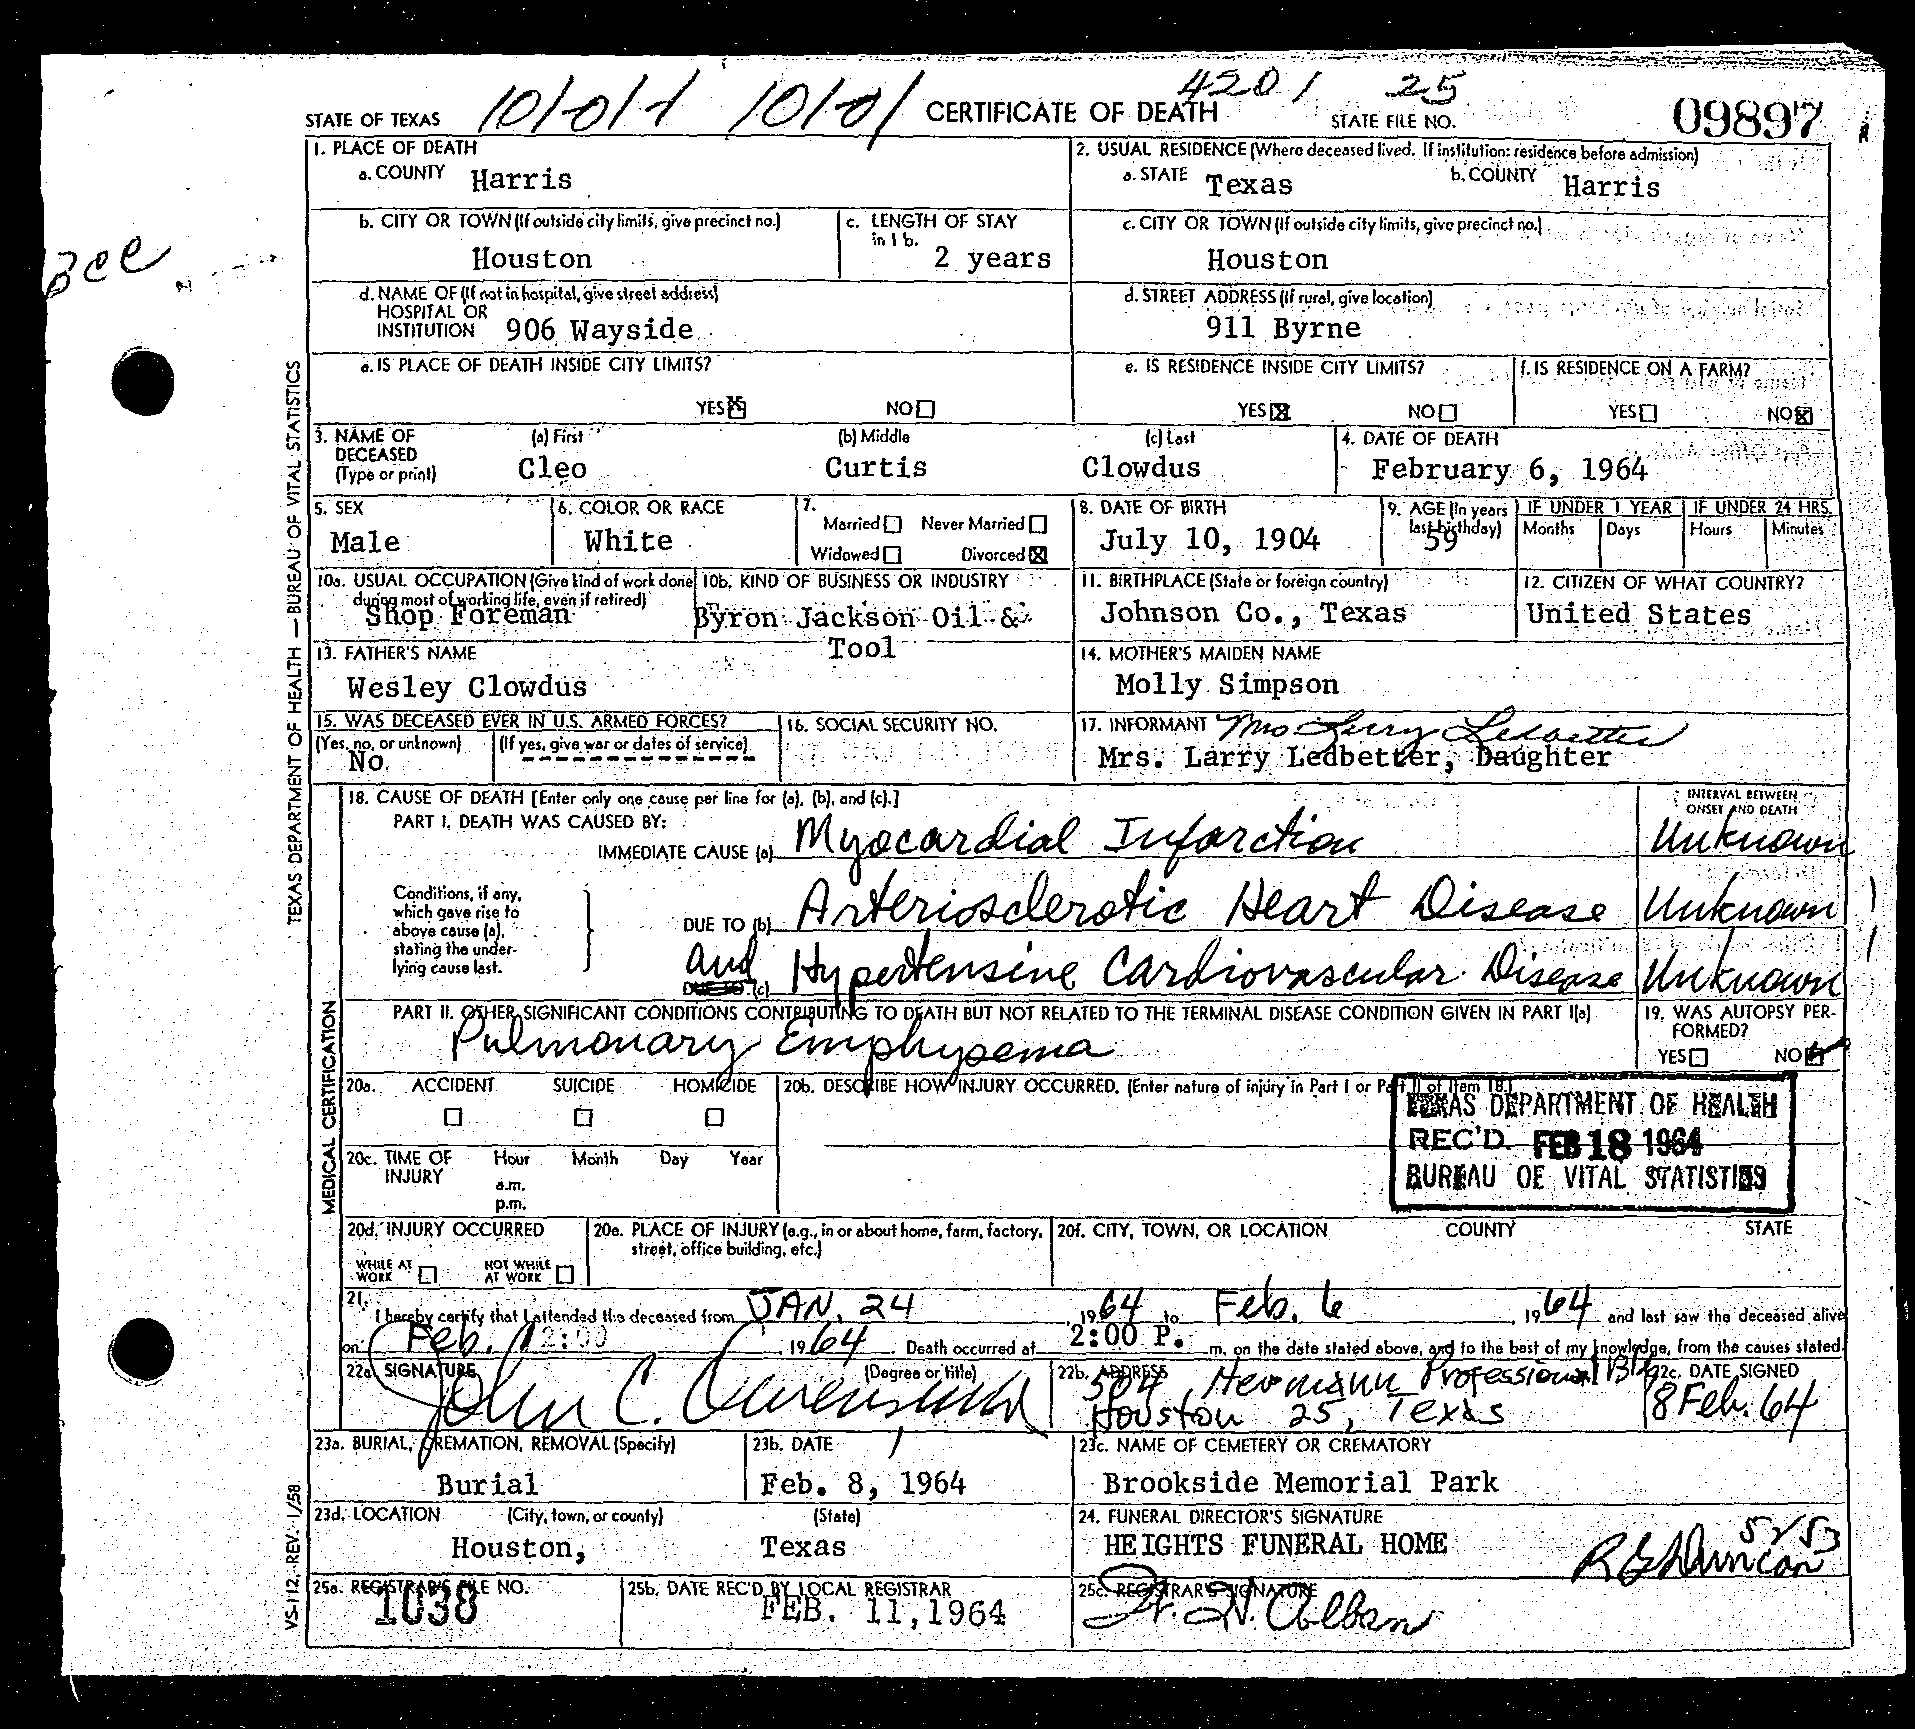 4201 25
STATE OF TEXAS 10/0/1 10/0/ CERTIFICATE OF DEATH STATE FILE NO. 09897
1. PLACE OF DEATH
a. COUNTY Harris
2. USUAL RESIDENCE (Where deceased lived. If institution: residence before admission)
a. STATE Texas b. COUNTY Harris
b. CITY OR TOWN (If outside city limits, give precinct no.)
Houston
c. LENGTH OF STAY in 1 b.
2 years
c. CITY OR TOWN (If outside city limits, give precinct no.)
Houston
Bee
d. NAME OF (If not in hospital, give street address)
HOSPITAL OR
INSTITUTION 906 Wayside
d. STREET ADDRESS (If rural, give location)
911 Byrne
e. IS PLACE OF DEATH INSIDE CITY LIMITS?
YES NO
e. IS RESIDENCE INSIDE CITY LIMITS?
YES NO
f. IS RESIDENCE ON A FARM?
YES NO
3. NAME OF DECEASED (Type or print)
(a) First (b) Middle (c) Last
Cleo Curtis Clowdus
4. DATE OF DEATH
February 6, 1964
5. SEX
Male
6. COLOR OR RACE
White
7.
Married Never Married
Widowed Divorced
8. DATE OF BIRTH
July 10, 1904
9. AGE (In years last birthday)
59
IF UNDER 1 YEAR
Months Days
IF UNDER 24 HRS.
Hours Minutes
10a. USUAL OCCUPATION (Give kind of work done during most of working life, even if retired)
Shop Foreman
10b. KIND OF BUSINESS OR INDUSTRY
Byron Jackson Oil &
Tool
11. BIRTHPLACE (State or foreign country)
Johnson Co., Texas
12. CITIZEN OF WHAT COUNTRY?
United States
13. FATHER'S NAME
Wesley Clowdus
14. MOTHER'S MAIDEN NAME
Molly Simpson
15. WAS DECEASED EVER IN U.S. ARMED FORCES?
(Yes, no, or unknown) (If yes, give war or dates of service)
No
16. SOCIAL SECURITY NO.
17. INFORMANT Mrs Larry Ledbetter
Mrs. Larry Ledbetter, Daughter
18. CAUSE OF DEATH [Enter only one cause per line for (a), (b), and (c).]
PART I. DEATH WAS CAUSED BY:
INTERVAL BETWEEN ONSET AND DEATH
IMMEDIATE CAUSE (a) Myocardial Infarction Unknown
Conditions, if any,
which gave rise to
above cause (a),
stating the under-
lying cause last.
DUE TO (b) Arteriosclerotic Heart Disease Unknown
and DUE TO (c) Hypertensine Cardiovascular Disease Unknown
PART II. OTHER SIGNIFICANT CONDITIONS CONTRIBUTING TO DEATH BUT NOT RELATED TO THE TERMINAL DISEASE CONDITION GIVEN IN PART I(a)
Pulmonary Emphysema
19. WAS AUTOPSY PER-
FORMED?
YES NO
20a. ACCIDENT SUICIDE HOMICIDE
20b. DESCRIBE HOW INJURY OCCURRED. (Enter nature of injury in Part I or Part II of Item 18.)
TEXAS DEPARTMENT OF HEALTH
REC'D. FEB 18 1964
BUREAU OF VITAL STATISTICS
20c. TIME OF INJURY
Hour Month Day Year
a.m.
p.m.
20d. INJURY OCCURRED
WHILE AT WORK NOT WHILE AT WORK
20e. PLACE OF INJURY (e.g., in or about home, farm, factory, street, office building, etc.)
20f. CITY, TOWN, OR LOCATION COUNTY STATE
21. I hereby certify that I attended the deceased from JAN. 24, 1964 to Feb. 6, 1964 and last saw the deceased alive
on Feb. 1964. Death occurred at 2:00 P. m. on the date stated above, and to the best of my knowledge, from the causes stated.
22a. SIGNATURE (Degree or title)
John C.
22b. ADDRESS
504 Hermann Professional Bldg
Houston 25, Texas
22c. DATE SIGNED
8 Feb. 64
23a. BURIAL, CREMATION, REMOVAL (Specify)
Burial
23b. DATE
Feb. 8, 1964
23c. NAME OF CEMETERY OR CREMATORY
Brookside Memorial Park
23d. LOCATION (City, town, or county) (State)
Houston, Texas
24. FUNERAL DIRECTOR'S SIGNATURE
HEIGHTS FUNERAL HOME R E Duncan 5153
25a. REGISTRAR'S FILE NO.
1038
25b. DATE REC'D BY LOCAL REGISTRAR
FEB. 11, 1964
25c. REGISTRAR'S SIGNATURE
TEXAS DEPARTMENT OF HEALTH — BUREAU OF VITAL STATISTICS
MEDICAL CERTIFICATION
VS-112, REV. 1/58